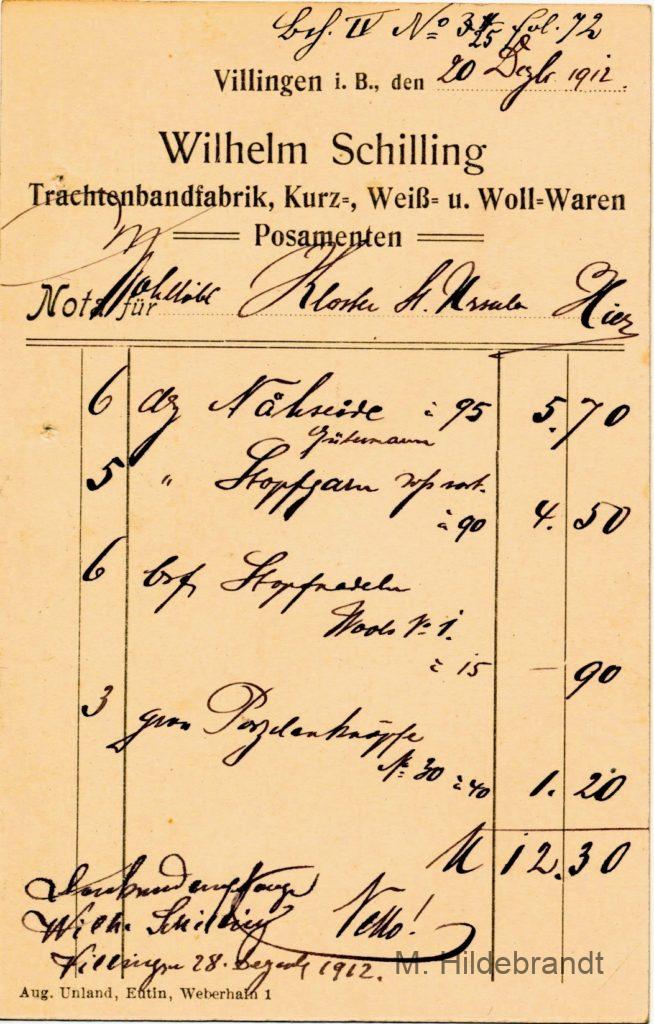 Bch. IV No 34/25 fol. 72
Villingen i. B., den 20 Dezbr 1912.
Wilhelm Schilling
Trachtenbandfabrik, Kurz-, Weiß- u. Woll-Waren
Posamenten
Nota für Wohllöbl Kloster St. Ursula Hier
6 dz Nähseide à 95 5.70
Gütermann
5 " Stopfgarn
à 90 4.50
6 brf Stopfnadeln
No 1.
à 15 — 90
3 gros Porzelanknöpfe
No 30 à 40 1.20
M 12.30
Dankend empfangen
Wilh. Schilling Netto!
Villingen 28. Dezemb 1912.
M. Hildebrandt
Aug. Unland, Eutin, Weberhain 1